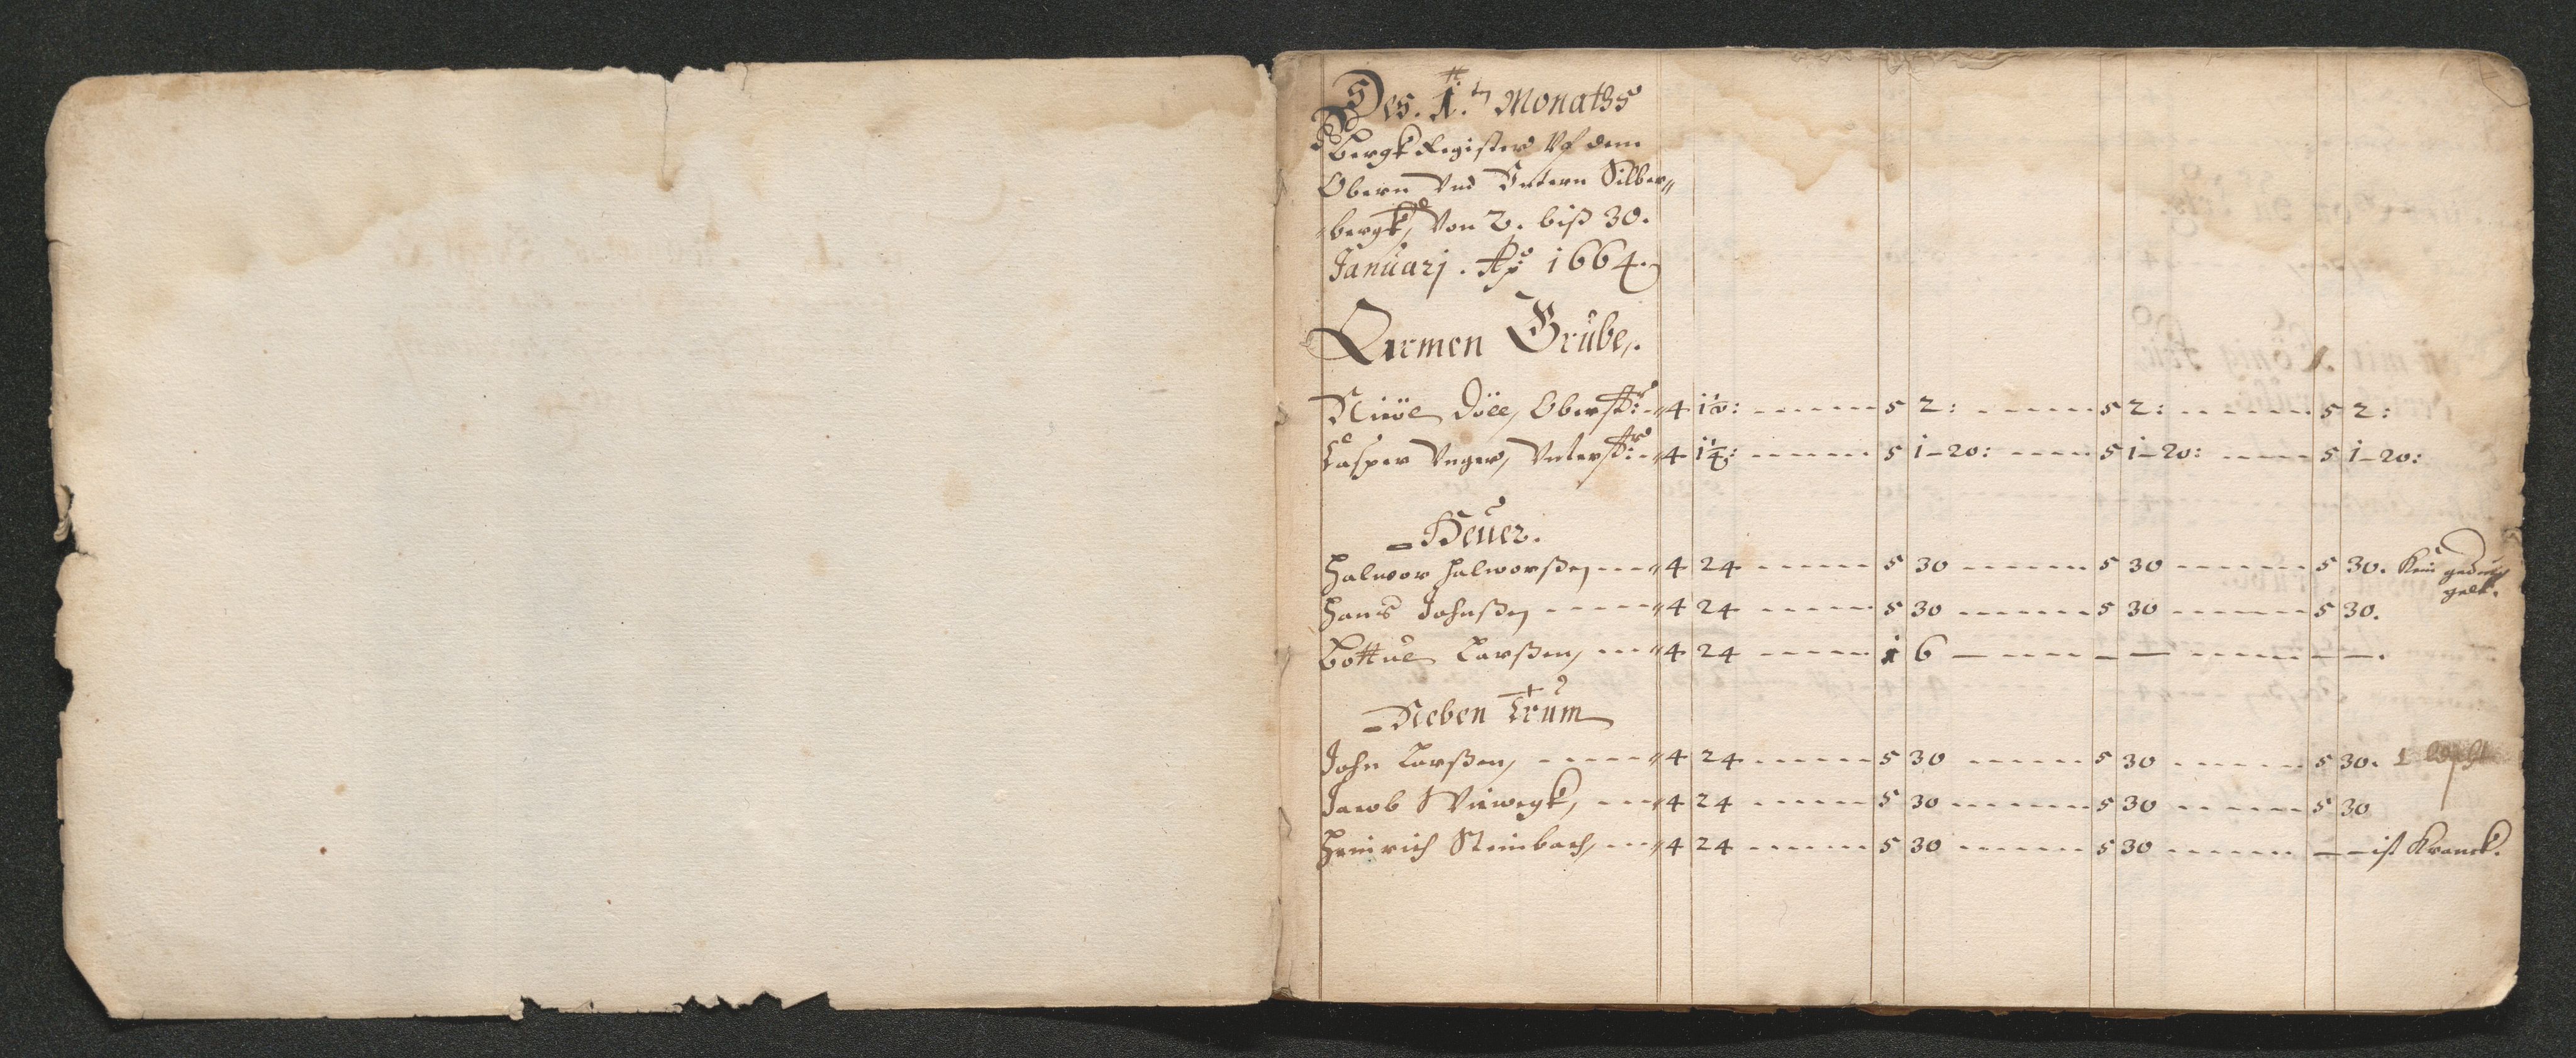 Des. 1.ten Monaths
Bergk Register Vf dem
Obern Vnd Vntern Silber-
bergk, Von 2. biß 30.
Januarj. Ao 1664.
Armen Grube,.
Obersr: 4 5 2: 5 2: 5 2:
Casper Vnger, Vntersr: 4 1¼: 5 1-20: 5 1-20: 5 1-20:
Heuer.
Halwor Halworßen 4 24 5 30 5 30 5 30. Kein gedinggelt.
Hans Johnßen 4 24 5 30 5 30 5 30.
Larßen, 4 24 1 6 — — — —.
Neben Trum
John Larßen, 4 24 5 30 5 30 5 30. 1
Jacob Viewegk, 4 24 5 30 5 30 5 30
Heinrich Steinbach, 4 24 5 30 5 30 — — ist Kranck.